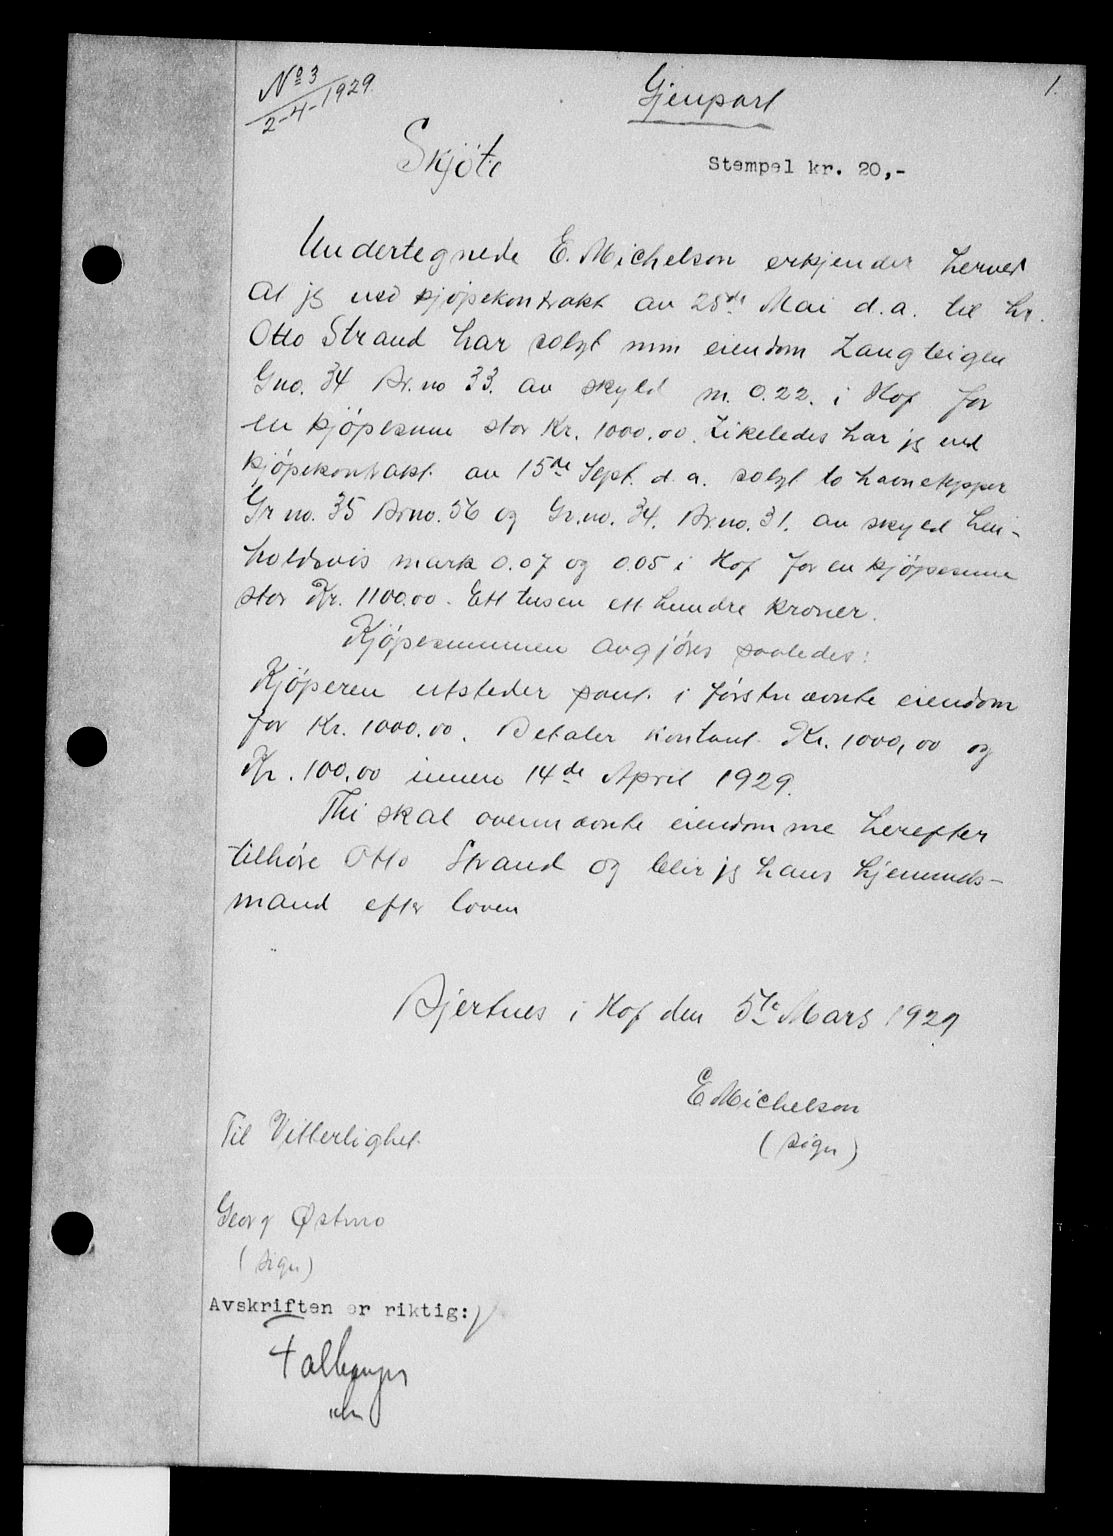 1.
No 3
2-4-1929
Gjenpart
Skjøte
Stempel kr. 20,-
Undertegnede E. Michelson erkjender herved
at jeg ved kjøpekontrakt av 28de Mai d.a. til hr.
Otto Strand har solgt min eiendom Langteigen
Gno. 34 Br.no 33. av skyld m. 0.22. i Hof for
en kjøpesum stor Kr. 1000.00. Likeledes har jeg ved
kjøpekontrakt av 15de Sept. d.a. solgt to havnestykker
Gr no. 35 Brno. 56 og Gr.no. 34. Br.no. 31. av skyld hen-
holdsvis mark 0.07 og 0.05 i Hof for en kjøpesum
stor Kr. 1100.00. Ett tusen ett hundre kroner.
Kjøpesummen avgjøres saaledes:
Kjøperen utsteder pant i førstnævnte eiendom
for Kr. 1000.00. Betaler kontant Kr. 1000,00 og
Kr. 100,00 innen 14de April 1929.
Thi skal ovennævnte eiendomme herefter
tilhøre Otto Strand og blir jeg hans hjemmels-
mand efter loven
Bjertnes i Hof den 5te Mars 1929
E Michelson
(sign)
Til Vitterlighet
Georg Østmo
(sign)
Avskriften er riktig: